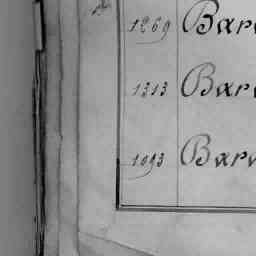 1269 Bar
1313 Bar
1093 Bar